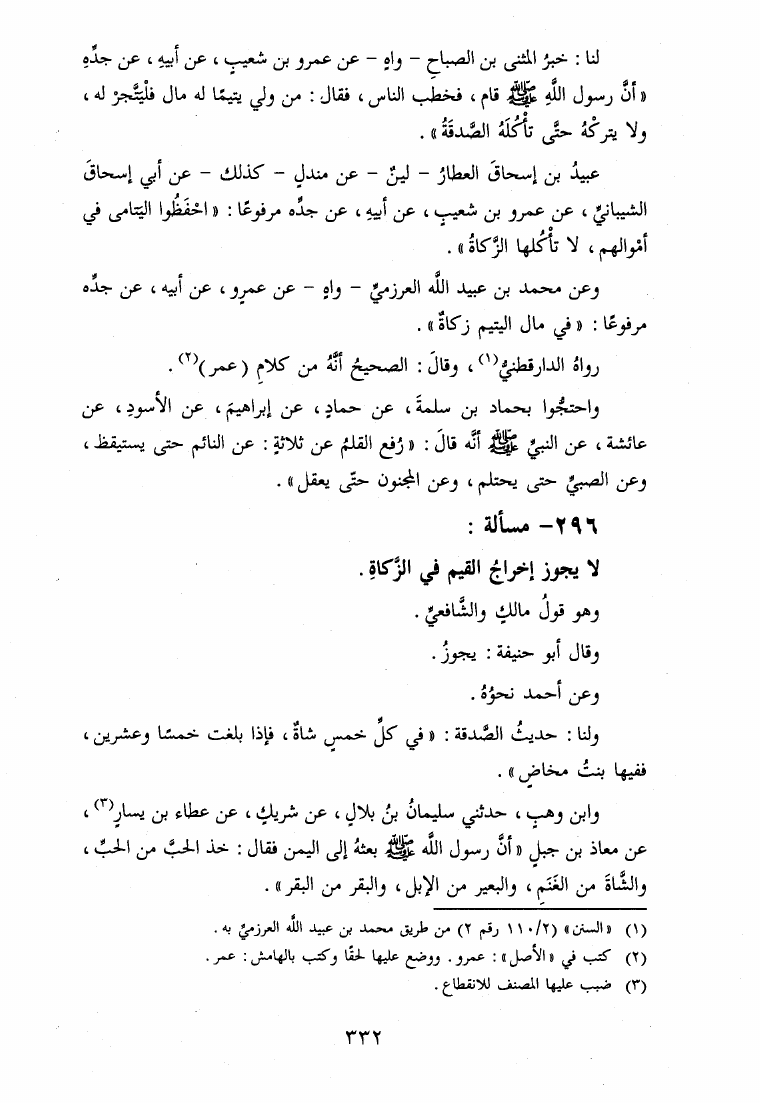 لنا : خبرُ المثنى بن الصباح – واهٍ – عن عمرو بن شعيبٍ ، عن أبيهِ ، عن جدِّهِ
« أنَّ رسول اللَّهِ ﷺ قام ، فخطب الناس ، فقال : من ولي يتيمًا له مال فلْيَتَّجرْ له ،
ولا يتركْهُ حتَّى تأْكُلَهُ الصَّدقَةُ » .
عبيدُ بن إسحاقَ العطارُ – لينٌ – عن مندلٍ – كذلك – عن أبي إسحاقَ
الشيبانيِّ ، عن عمرو بن شعيبٍ ، عن أبيهِ ، عن جدِّه مرفوعًا : « احْفَظُوا اليَتامى في
أمْوالهم ، لا تأْكُلها الزَّكاةُ » .
وعن محمد بن عبيد اللَّه العرزميِّ – واهٍ – عن عمرٍو ، عن أبيه ، عن جدِّه
مرفوعًا : « في مال اليتيم زكاةٌ » .
رواهُ الدارقطنيُّ(١) ، وقالَ : الصحيحُ أنَّهُ من كلامِ ( عمر )(٢) .
واحتجُّوا بحماد بن سلمةَ ، عن حمادٍ ، عن إبراهيمَ ، عن الأسودِ ، عن
عائشة ، عن النبيِّ ﷺ أنَّه قالَ : « رُفع القلمُ عن ثلاثةٍ : عن النائم حتى يستيقظ ،
وعن الصبيِّ حتى يحتلم ، وعن المجنون حتّى يعقل » .
٢٩٦– مسألة :
لا يجوز إخراجُ القيم في الزَّكاةِ .
وهو قولُ مالكٍ والشَّافعيِّ .
وقال أبو حنيفة : يجوزُ .
وعن أحمد نحوُهُ .
ولنا : حديثُ الصَّدقة : « في كلِّ خمسٍ شاةٌ ، فإذا بلغت خمسًا وعشرين ،
ففيها بنتُ مخاضٍ » .
وابن وهبٍ ، حدثني سليمانُ بنُ بلالٍ ، عن شريكٍ ، عن عطاء بن يسارٍ(٣) ،
عن معاذ بن جبلٍ « أنَّ رسول اللَّه ﷺ بعثهُ إلى اليمن فقال : خذ الحبَّ من الحبِّ ،
والشَّاةَ من الغَنَمِ ، والبعير من الإبل ، والبقر من البقر » .
(١) « السنن » (٢/ ١١٠ رقم ٢) من طريق محمد بن عبيد اللَّه العرزميِّ به .
(٢) كتب في « الأصل » : عمرو . ووضع عليها لحقًا وكتب بالهامش : عمر .
(٣) ضبب عليها المصنف للانقطاع .
٣٣٢